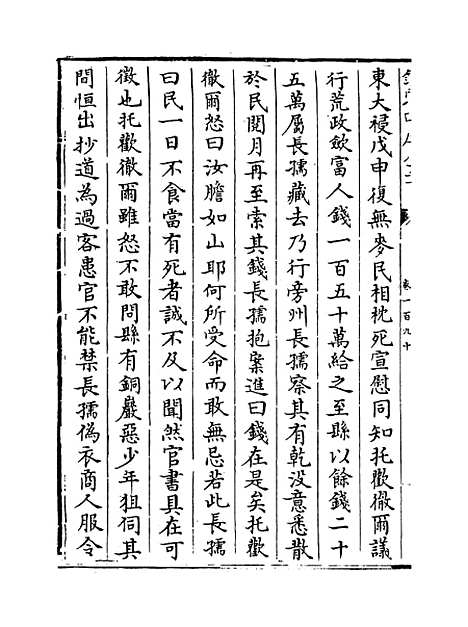 東大祲戊申復無麥民相枕死宣慰同知托歡徹爾議
行荒政斂富人錢一百五十萬給之至縣以餘錢二十
五萬屬長孺藏去乃行旁州長孺察其有乾没意悉散
於民閱月再至索其錢長孺抱案進曰錢在是矣托歡
徹爾怒曰汝膽如山耶何所受命而敢無忌若此長孺
曰民一日不食當有死者誠不及以聞然官書具在可
徵也托歡徹爾雖怒不敢問縣有銅巖惡少年狙伺其
間恒出抄道為過客患官不能禁長孺偽衣商人服令
卷一百九十